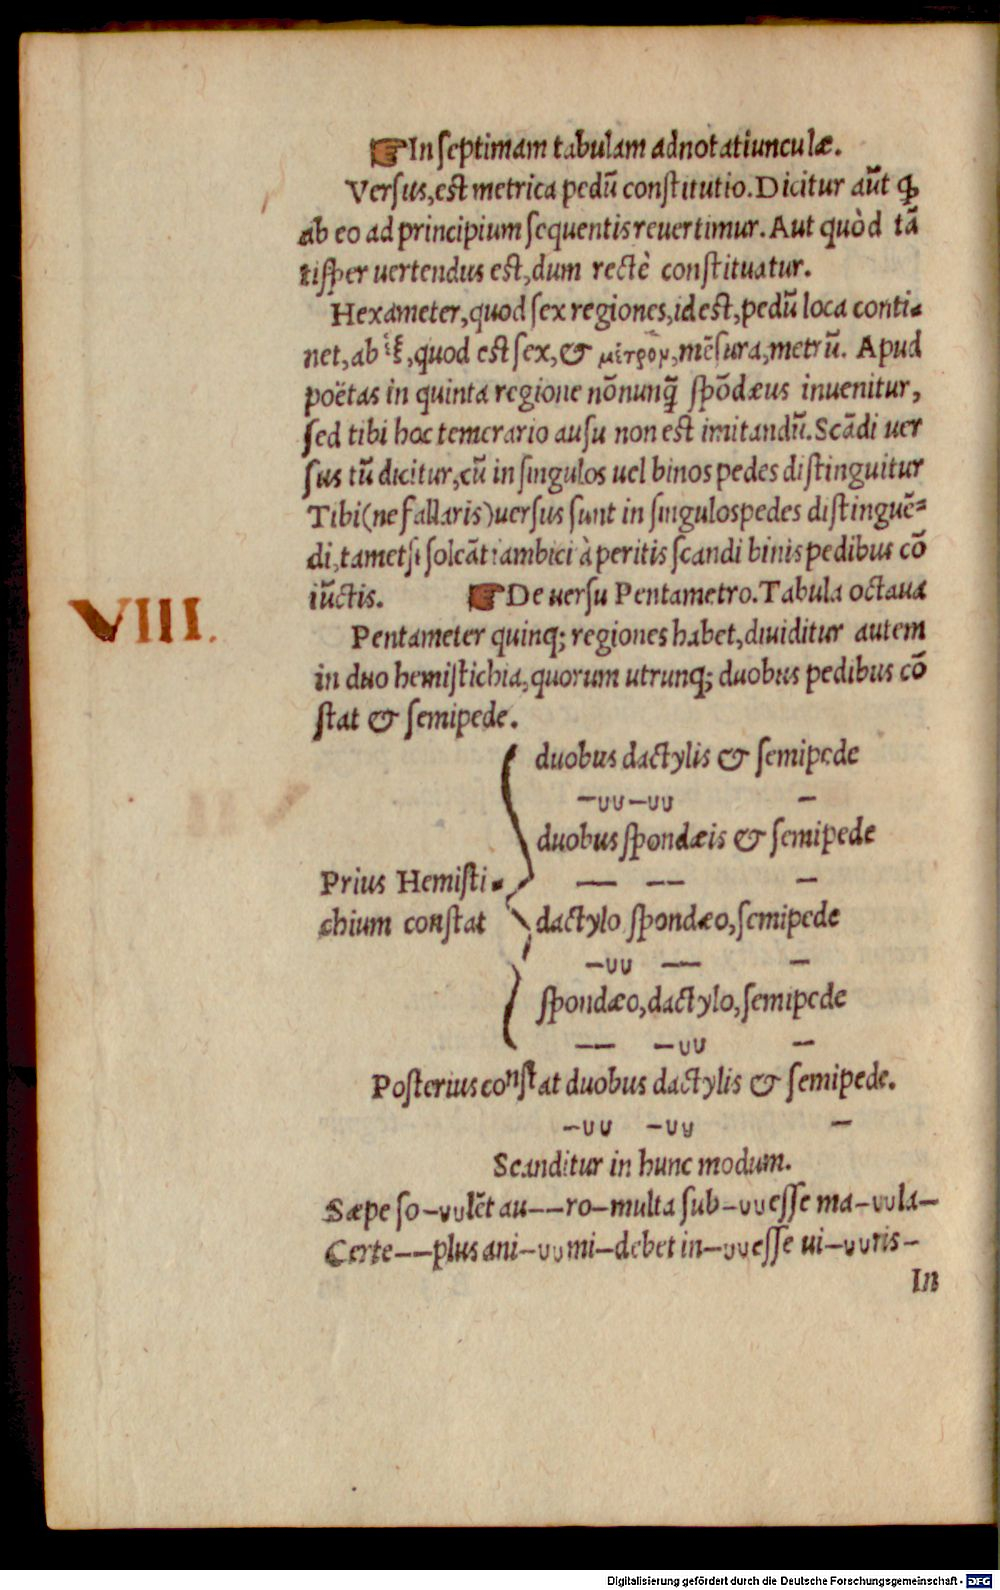 ☞In ſeptimam tabulam adnotatiunculæ.
Verſus,eſt metrica pedũ conſtitutio.Dicitur aũt ꝙ
ab eo ad principium ſequentis reuertimur.Aut quòd tã
tiſper uertendus eſt,dum rectè conſtituatur.
Hexameter,quod ſex regiones,id eſt,pedũ loca conti-
net,ab ἓξ,quod eſt ſex,& μέτρον,mẽſura,metrũ. Apud
poëtas in quinta regione nõnunꝗ̃ ſpõdæus inuenitur,
ſed tibi hoc temerario auſu non eſt imitandũ.Scãdi uer
ſus tũ dicitur,cũ in ſingulos uel binos pedes diſtinguitur
Tibi(ne fallaris)uerſus ſunt in ſingulos pedes diſtinguẽ=
di,tametſi ſoleãt iambici à peritis ſcandi binis pedibus cõ
iũctis. ☞De uerſu Pentametro.Tabula octaua
VIII.
Pentameter quinq; regiones habet,diuiditur autem
in duo hemiſtichia,quorum utrunq; duobus pedibus cõ
ſtat & ſemipede.
duobus dactylis & ſemipede
—υυ—υυ —
duobus ſpondæis & ſemipede
Prius Hemiſti-
—— —— —
chium conſtat
dactylo ſpondæo,ſemipede
—υυ —— —
ſpondæo,dactylo,ſemipede
—— —υυ —
Poſterius conſtat duobus dactylis & ſemipede.
—υυ —υυ —
Scanditur in hunc modum.
Sæpe ſo—υυlẽt au——ro—multa ſub—υυeſſe ma—υυla—
Certe——plus ani—υυmi—debet in—υυeſſe ui—υυris—
In
Digitalisierung gefördert durch die Deutsche Forschungsgemeinschaft - DFG